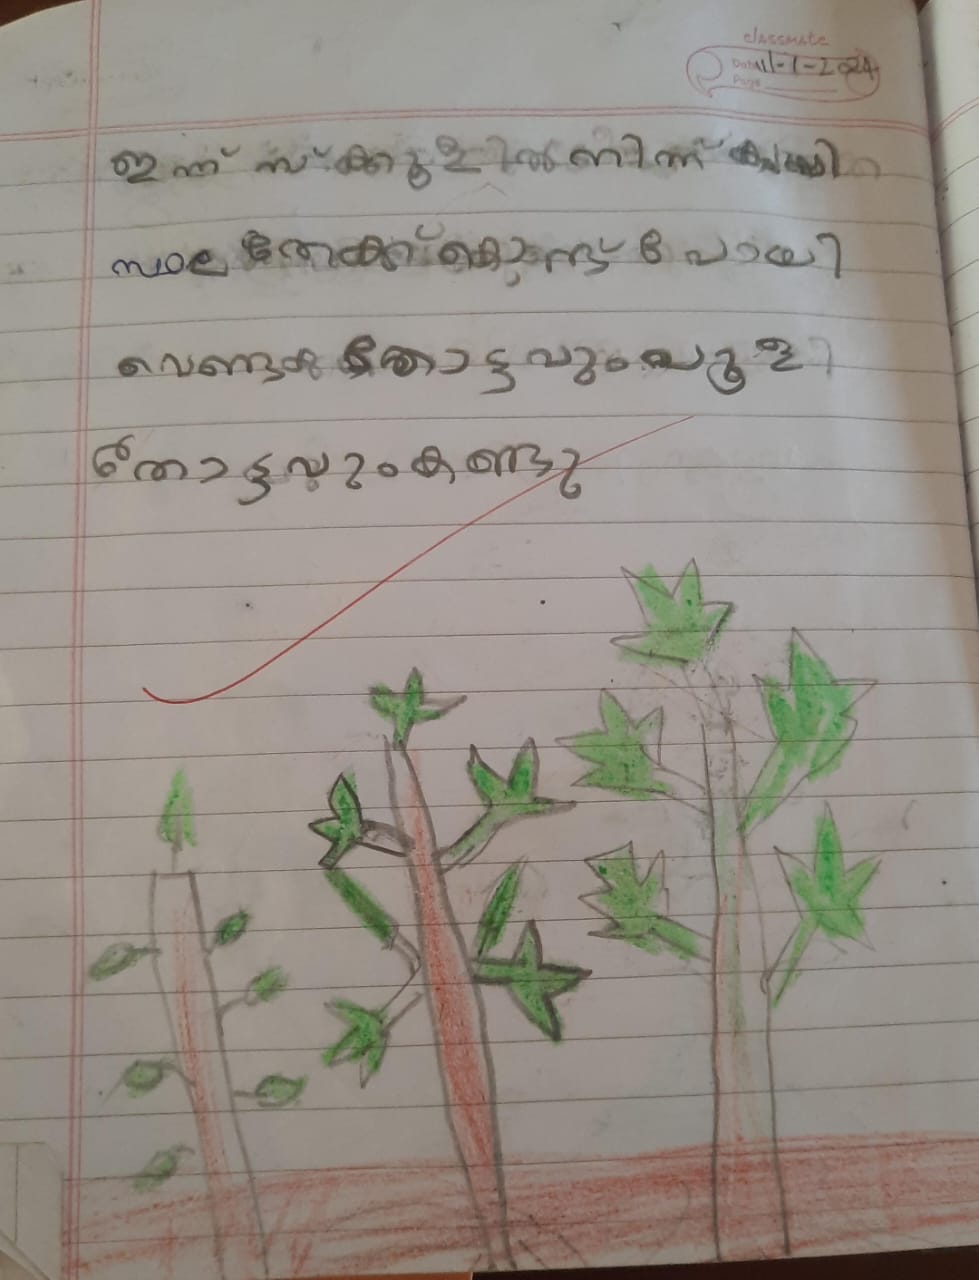 classmate
Date 11-1-2024
Page
ഇന്ന് സ്ക്കൂളിൽ നിന്ന് കൃഷി
സ്ഥലത്തേക്ക് കൊണ്ട് പോയി
വെണ്ടക്ക തോട്ടവും പൂളി
തോട്ടവും കണ്ടു